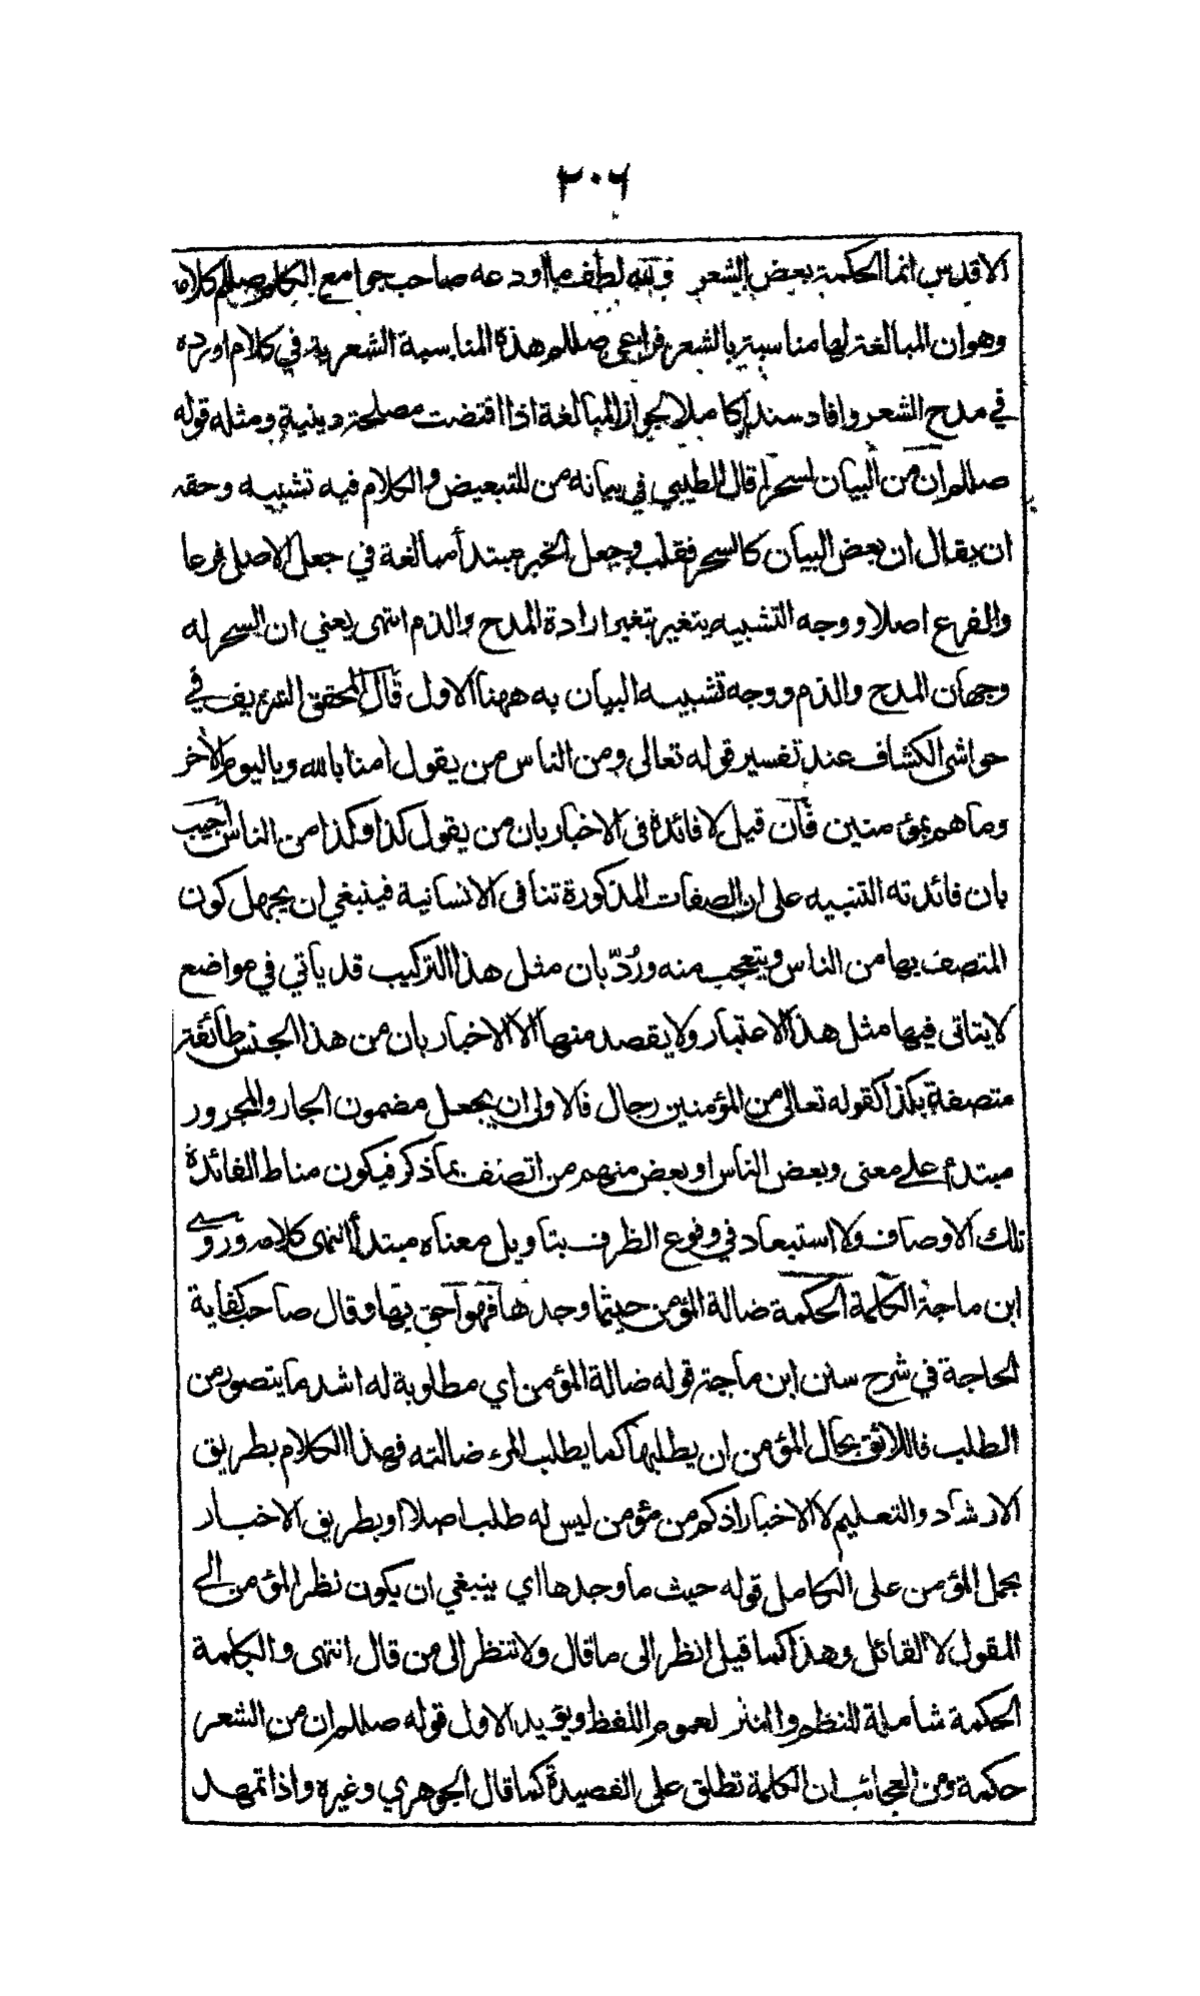 ٢٠٦
الاقدس انما الحكمة بعض الشعر ولله لطف ما اودعه صاحب جوامع الكلم صللم كلامه
وهو ان المبالغة لها مناسبة بالشعر فراعى صللم هذه المناسبة الشعرية في كلام اورده
في مدح الشعر وافاد سندا كاملا لجواز المبالغة اذا اقتضت مصلحة دينية ومثله قوله
صللم ان من البيان لسحرا قال الطيبي في بيانه من للتبعيض والكلام فيه تشبيه وحقه
ان يقال ان بعض البيان كالسحر فقلب وجعل الخبر مبتدأ مبالغة في جعل الاصل فرعا
والفرع اصلا ووجه التشبيه يتغير بتغير ارادة المدح والذم انتهى يعني ان السحر له
وجهان المدح والذم ووجه تشبيه البيان به ههنا الاول قال المحقق الشريف في
حواشي الكشاف عند تفسير قوله تعالى ومن الناس من يقول امنا بالله وباليوم الآخر
وما هم بمؤمنين فان قيل لا فائدة في الاخبار بان من يقول كذا وكذا من الناس اجيب
بان فائدته التنبيه على ان الصفات المذكورة تنافى الانسانية فينبغي ان يجهل كون
المتصف بها من الناس ويتعجب منه وردّ بان مثل هذا التركيب قد يأتي في مواضع
لا يتاتى فيها مثل هذا الاعتبار ولا يقصد منها الا الاخبار بان من هذا الجنس طائفة
متصفة بكذا كقوله تعالى من المؤمنين رجال فالاولى ان يجعل مضمون الجار والمجرور
مبتدء على معنى وبعض الناس او بعض منهم من اتصف بما ذكر فيكون مناط الفائدة
تلك الاوصاف ولا استبعاد في وقوع الظرف بتاويل معناه مبتدأ انتهى كلامه وروى
ابن ماجة الكلمة الحكمة ضالة المؤمن حيثما وجدها فهو احق بها وقال صاحب كفاية
الحاجة في شرح سنن ابن ماجة قوله ضالة المؤمن اي مطلوبة له اشد ما يتصور من
الطلب فاللائق بحال المؤمن ان يطلبها كما يطلب المرء ضالته فهذا الكلام بطريق
الارشاد والتعليم لا الاخبار اذ كم من مؤمن ليس له طلب اصلا او بطريق الاخبار
بحمل المؤمن على الكامل قوله حيث ما وجدها اي ينبغي ان يكون نظر المؤمن الى
المقول لا القائل وهذا كما قيل انظر الى ما قال ولا تنظر الى من قال انتهى والكلمة
الحكمة شاملة للنظم والنثر لعموم اللفظ ويؤيد الاول قوله صللم ان من الشعر
حكمة ومن العجائب ان الكلمة تطلق على القصيدة كما قال الجوهري وغيره واذا تمهد